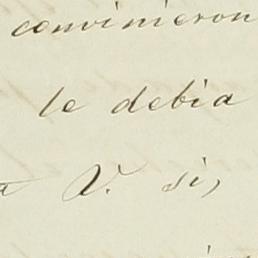 convinieron
le debia
a V. si,